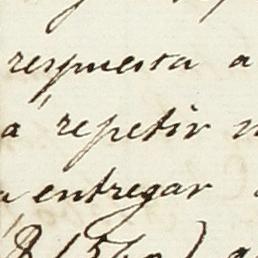 respuesta a
a repetir
entregar